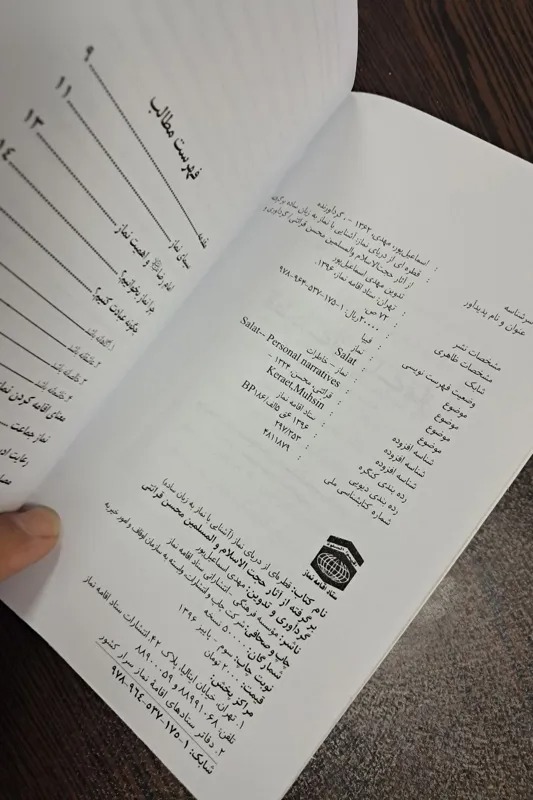 سرشناسه : اسماعیل‌پور، مهدی، ۱۳۶۲ - ، گردآورنده
عنوان و نام پدیدآور : قطره ای از دریای نماز: آشنایی با نماز به زبان ساده برگرفته
از آثار حجت‌الاسلام والمسلمین محسن قرائتی/ گردآوری و
تدوین مهدی اسماعیل‌پور
مشخصات نشر : تهران: ستاد اقامه نماز، ۱۳۹۶.
مشخصات ظاهری : ۷۲ ص.
شابک : ۲۰۰۰۰ریال: ۱-۱۷۵-۵۳۷-۹۶۴-۹۷۸
وضعیت فهرست نویسی : فیپا
موضوع : نماز
موضوع : Salat
موضوع : نماز -- خاطرات
موضوع : Salat-- Personal narratives
شناسه افزوده : قرائتی، محسن، ۱۳۲۴ -
شناسه افزوده : Keraet,Muhsin
شناسه افزوده : ستاد اقامه نماز
رده بندی کنگره : BP۱۸۶/الف۵ ۱۳۹۶
رده بندی دیویی : ۲۹۷/۳۵۳
شماره کتابشناسی ملی : ۴۸۱۱۸۷۹
ستاد اقامه نماز
نام کتاب: قطره‌ای از دریای نماز (آشنایی با نماز به زبان ساده)
برگرفته از آثار حجت الاسلام و المسلمین محسن قرائتی
گردآوری و تدوین: مهدی اسماعیل‌پور
ناشر: مؤسسه فرهنگی - انتشاراتی ستاد اقامه نماز
چاپ و صحافی: شرکت چاپ و انتشارات وابسته به سازمان اوقاف و امور خیریه
شمارگان: ۵۰۰۰ نسخه
نوبت چاپ: سوم - پاییز ۱۳۹۶
قیمت: ۲۰۰۰ تومان
مراکز پخش:
۱. تهران، خیابان ایتالیا، پلاک ۴۶ انتشارات ستاد اقامه نماز
تلفن: ۸۸۹۹۱۰۶۸ و ۸۸۹۰۰۰۵۹
۲. دفاتر ستادهای اقامۀ نماز سراسر کشور
شابک: ۱-۱۷۵-۵۳۷-۹۶۴-۹۷۸
فهرست مطالب
مقدمه ۹
سیمای نماز ۱۱
امام رضا و اهمیت نماز ۱۳
چرا نماز بخوانیم؟ ۱۴
چگونه عبادت کنیم؟
معنای اقامه کردن نماز
نماز جماعت
رعایت